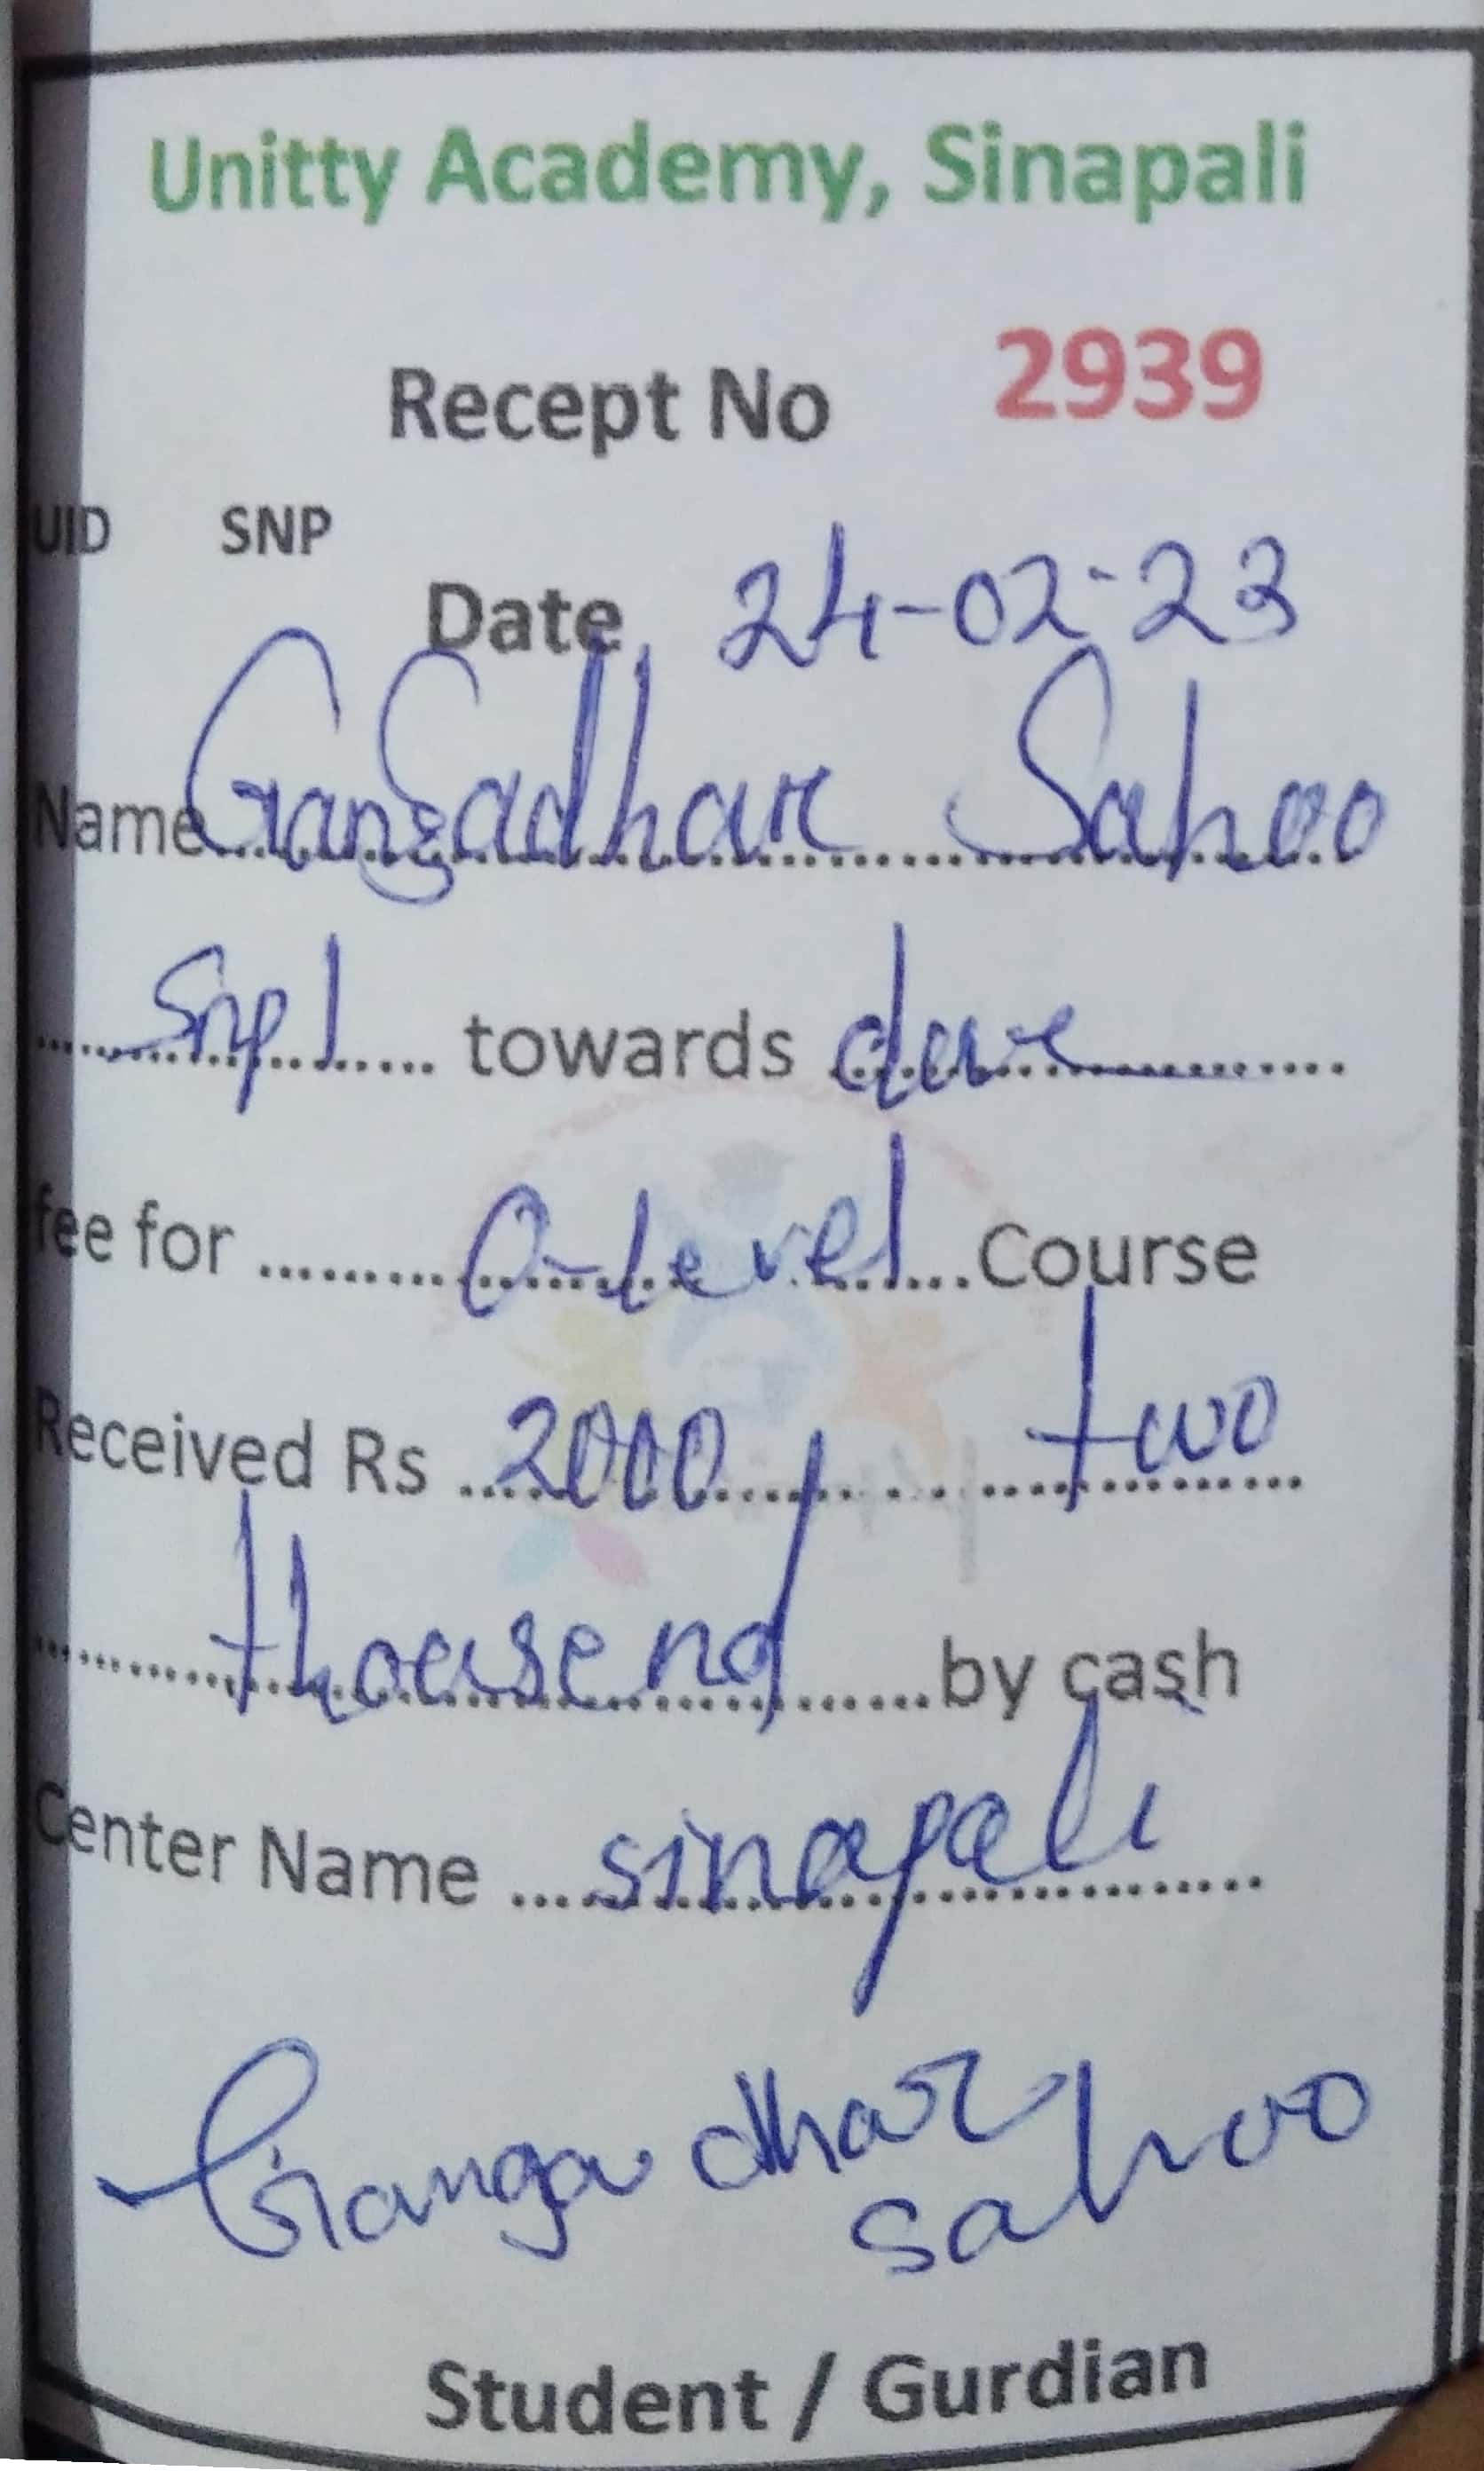 Unitty Academy, Sinapali
Recept No 2939
UID SNP
Date 24-02-23
Name Gangadhar Sahoo
Snpl towards due
fee for O-level Course
Received Rs 2000 two
thousend by cash
Center Name sinapali
Gangadhar
sahoo
Student / Gurdian